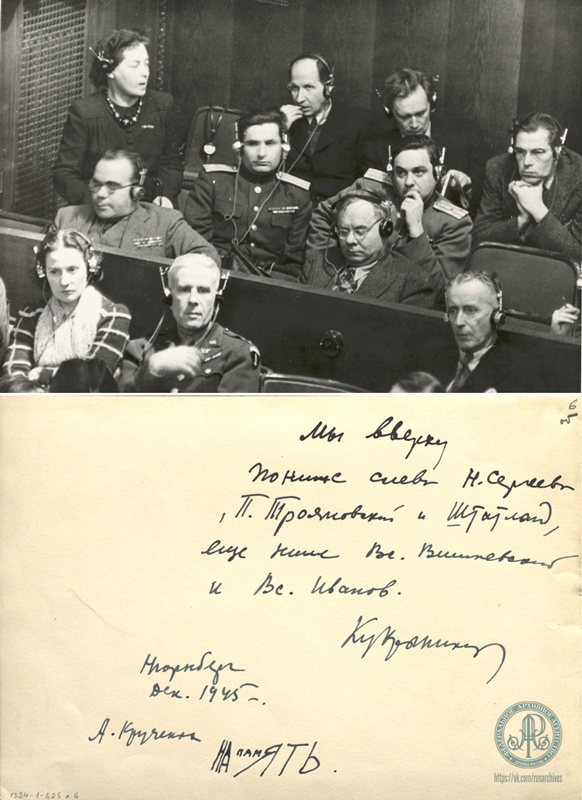 6
об
Мы вверху
пониже слева Н. Сергеева
, П. Трояновский и Штатланд,
еще ниже Вс. Вишневский
и Вс. Иванов.
Кукрыниксы
Нюрнберг
Дек. 1945 –.
А. Крученых
НА ПАМЯТЬ.
ФЕДЕРАЛЬНОЕ АРХИВНОЕ АГЕНТСТВО
1334-1-625 л. 6
https://vk.com/rusarchives